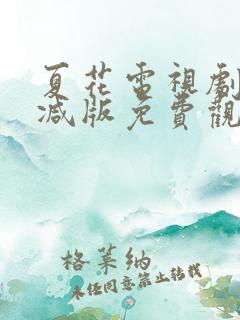 夏花電視劇
減版免費觀
格萊納
未任同意禁止转载